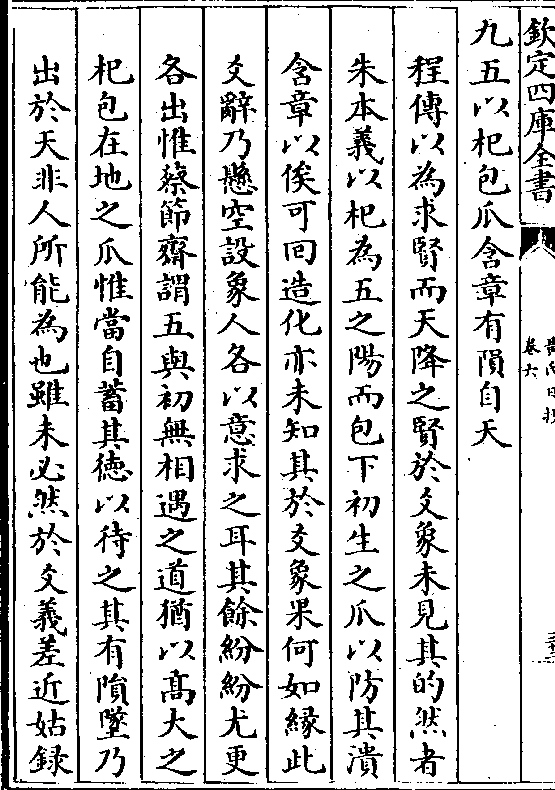 欽定四庫全書
卷六
九五以杞包瓜含章有隕自天
程傳以為求賢而天降之賢於爻象未見其的然者
朱本義以杞為五之陽而包下初生之瓜以防其潰
含章以俟可回造化亦未知其於爻象果何如緣此
爻辭乃懸空設象人各以意求之耳其餘紛紛尤更
各出惟蔡節齋謂五與初無相遇之道猶以髙大之
杞包在地之瓜惟當自蓄其徳以待之其有隕墜乃
出於天非人所能為也雖未必然於爻義差近姑録